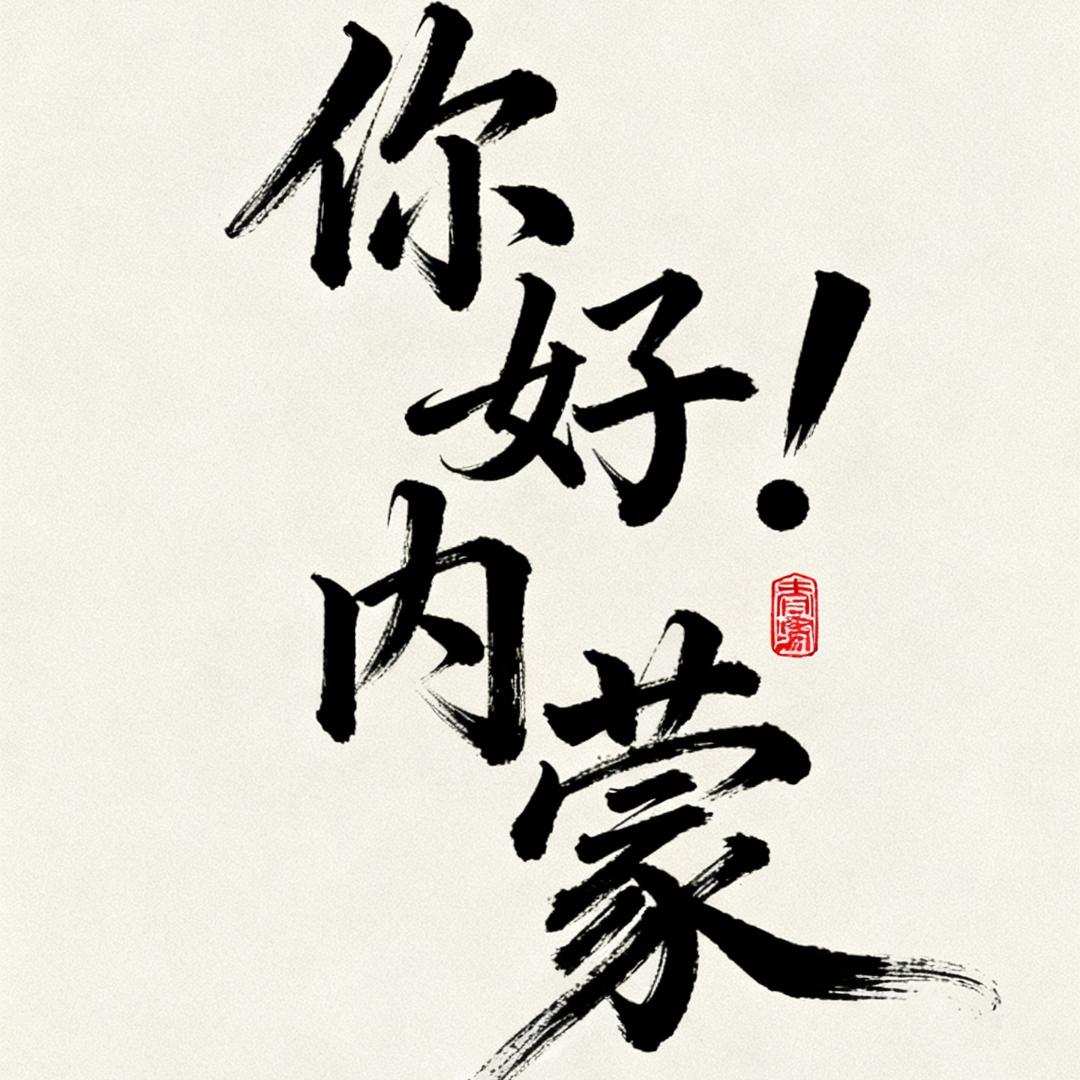 你好!
内蒙